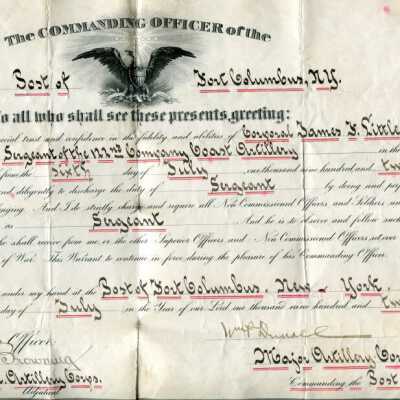 The COMMANDING OFFICER of the
Post of Fort Columbus, N.Y.
To all who shall see these presents, greeting:
cial trust and confidence in the fidelity and abilities of Corporal James F. Little
Sergeant of the 122nd Company Coast Artillery in the
from the sixth day of July one thousand nine hundred and tw
and diligently to discharge the duty of Sergeant by doing and pe
nging. And I do strictly charge and require all Non Commissioned Officers and Soldiers
as Sergeant And he is to observe and follow such
he shall receive from me or the other Superior Officers and Non Commissioned Officers set over
of War. This Warrant to continue in force during the pleasure of his Commanding Officer.
under my hand at the Post of Fort Columbus, New-York.
day of July in the Year of our Lord one thousand nine hundred and tw
Officer:
Major Artillery Corp
Artillery Corps. Commanding the Post
Adjutant